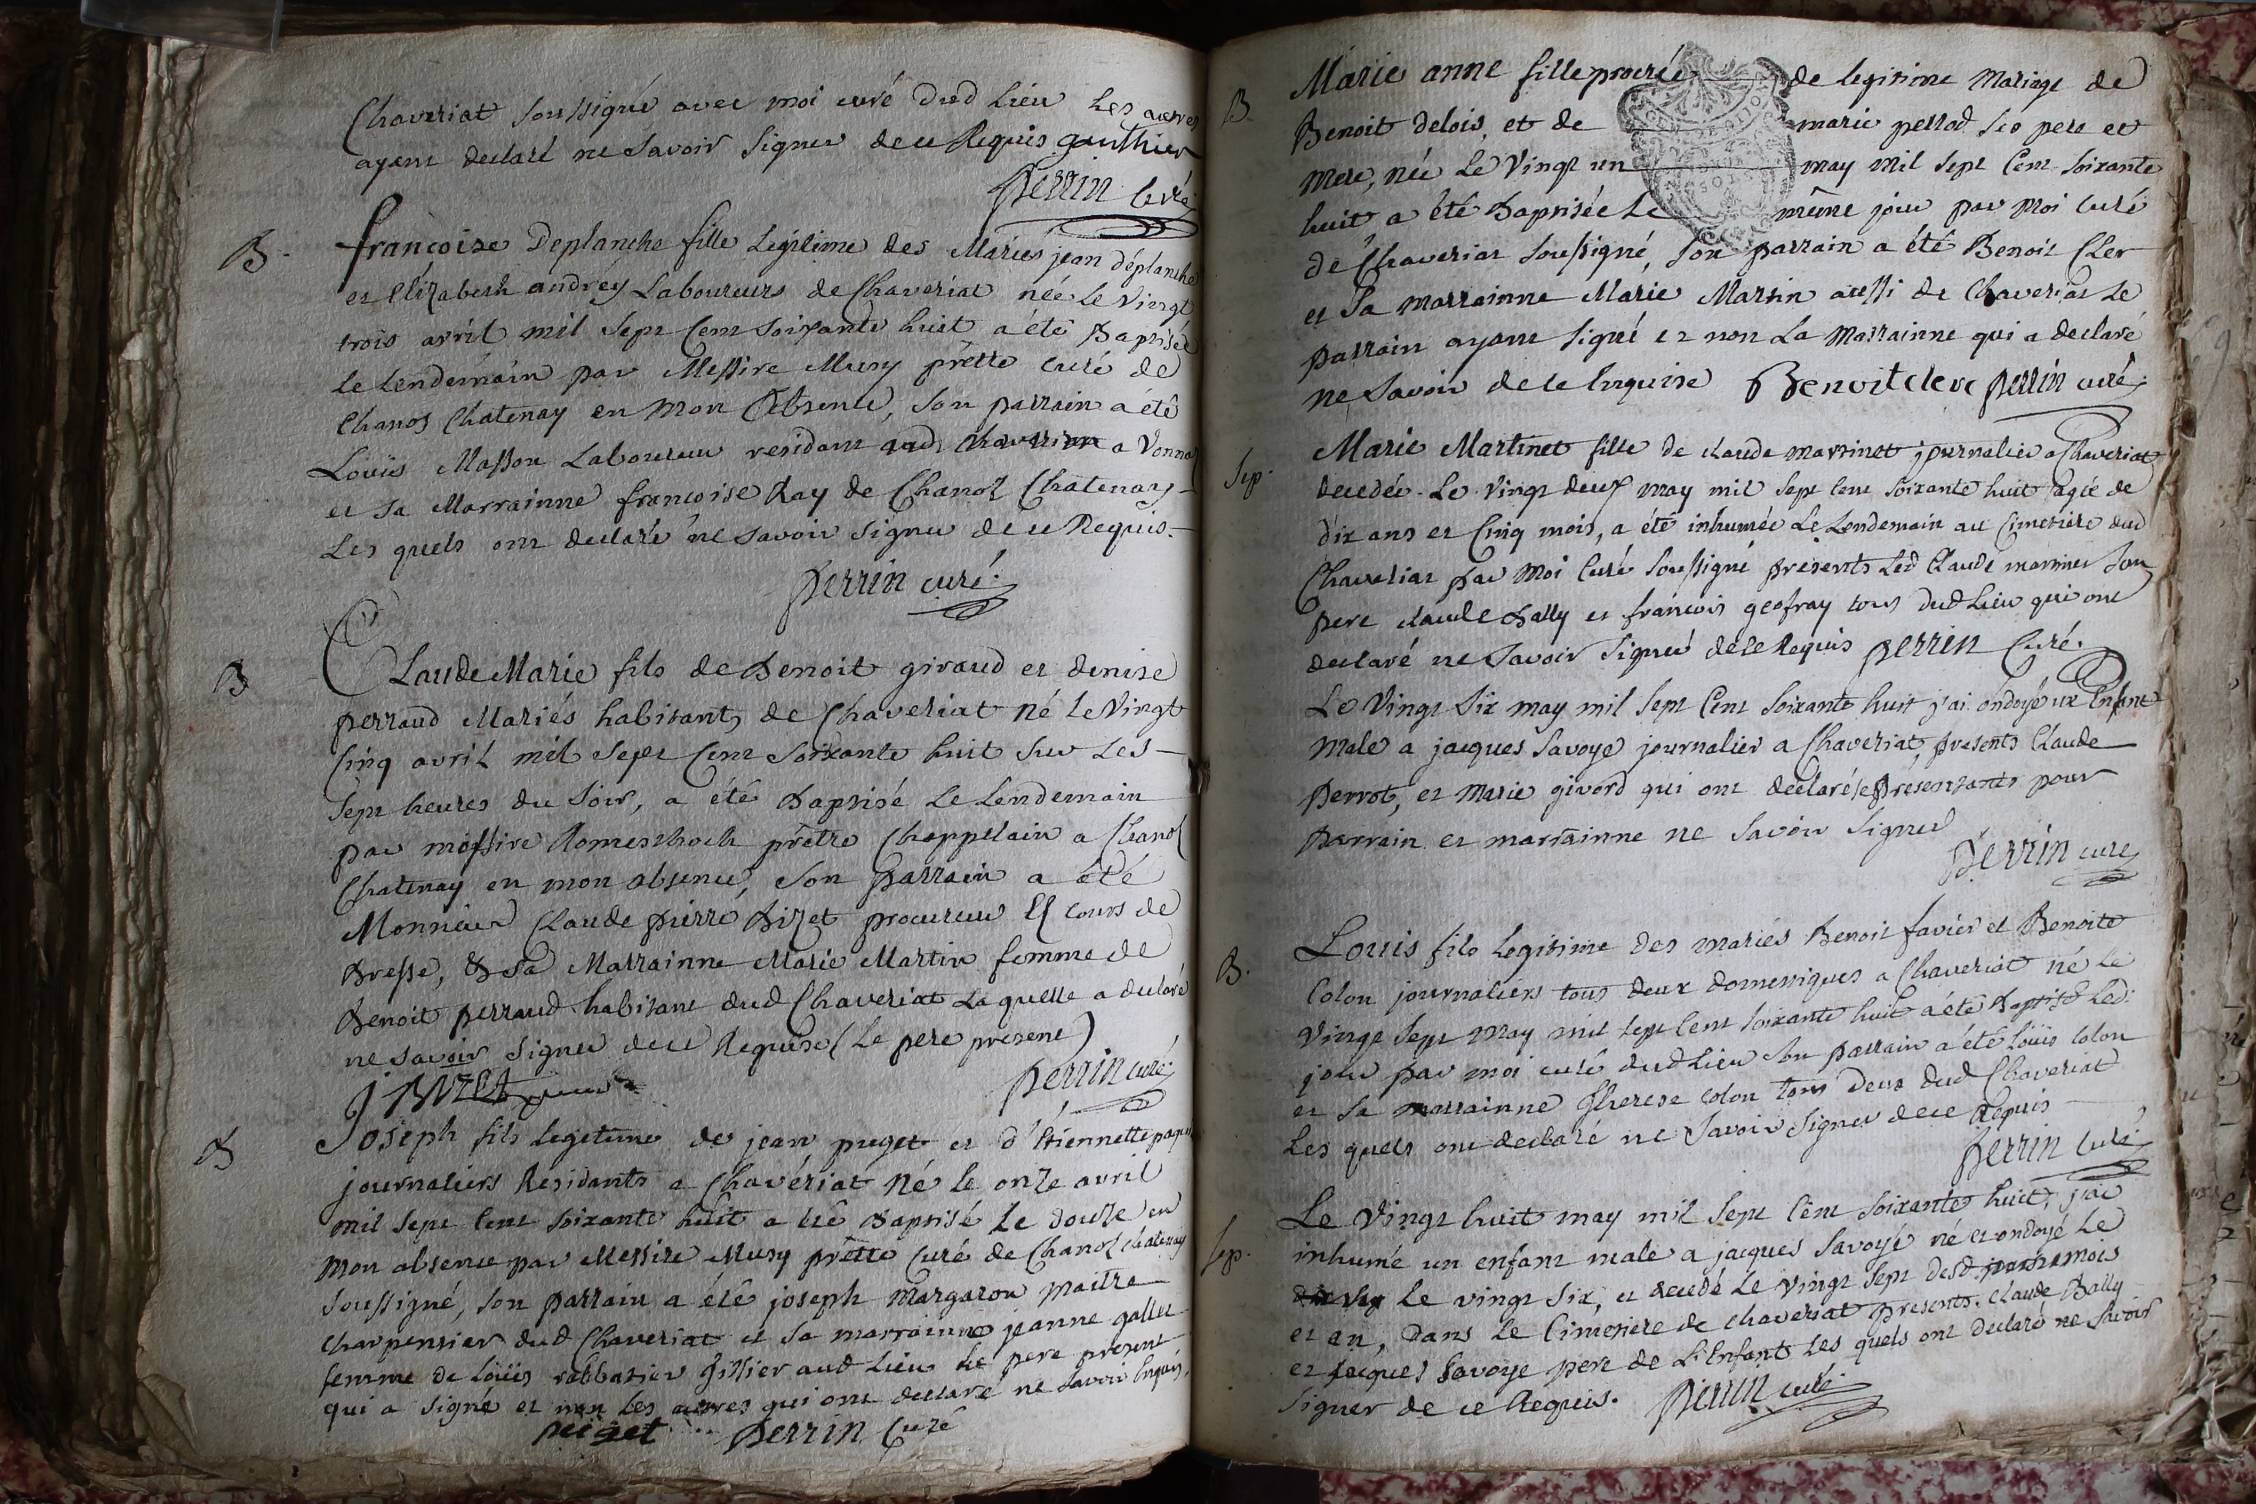 Chaveriat soussigné avec moi curé dud Lieu Les autres
ayant declaré ne savoir signer de ce Requis gauthier
perrin curé
B.
françoise Deplanche fille Legitime des Mariés jean déplanche
et Elizabeth andréy Laboureurs de Chaveriat née Le Vingt
trois avril mil sept Cent soixante huit a été Baptisée
Le Lendemain par Messire Muny prêtre curé de
Chanos Chatenay en mon absence, son parrain a été
Loüis Masson Laboureur residant a Vonna
et sa Marrainne francoise Ray de Chanoz Chatenay
Les quels ont declaré ne savoir signer de ce Requis.
perrin curé.
B
Claude Marie fils de Benoit giraud et denise
perraud Mariés habitants de Chaveriat né Le Vingt
Cinq avril mil sept Cent soixante huit sur Les
sept heures du soir, a été Baptisé Le Lendemain
par messire prêtre Chappelain a Chanoz
Chatenay en mon absence, son parrain a été
Monsieur Claude pierre Bizet procureur Es cours de
Bresse, & sa Marrainne Marie Martin femme de
Benoit perraud habitant dud Chaveriat Laquelle a declaré
ne savoir signer de ce Requise (Le pere present)
perrin curé.
B
Joseph fils legetime de jean puget et d'Etiennette
journaliers Residants a Chavériat Né le onze avril
mil sept Cent soixante huit a été Baptisé Le douze en
mon absence par Messire Muny prêtre Curé de Chanoz chatenay
soussigné, son parrain a été joseph Margaron maitre
charpentier dud Chaveriat et sa marrainne jeanne gallet
femme de Loüis rabbatier aud Lieu Le pere present
qui a signé et non Les autres qui ont declaré ne savoir Enquis.
perrin Curé
B.
Marie anne fille procréée de legitime Mariage de
Benoit delois et de marie perrod ses pere et
mere, née Le Vingt un may mil sept Cent soixante
huit a été Baptisée Le même jour par moi Curé
de Chaveriat soussigné, son parrain a été Benoit Cler
et sa marrainne Marie Martin aussi de Chaveriat Le
parrain ayant signé et non La Marrainne qui a declaré
ne savoir de ce Enquise Benoit clerc perrin curé.
Sep.
Marie Martinet fille de claude martinet journalier a Chaveriat
decedée Le vingt deux may mil sept cent soixante huit agée de
dix ans et Cinq mois, a été inhumée Le Lendemain au Cimetière dud
Chaveriat par moi Curé soussigné presents Led Claude martinet son
pere claude Bally et francois geofray tous dud Lieu qui ont
declaré ne savoir signer de ce Requis perrin Curé.
Le Vingt six may mil sept Cent soixante huit j'ai ondoyé un Enfant
male a jacques savoye journalier a Chaveriat, presents Claude
perrot, et marie givord qui ont declaré se présentants pour
parrain et marrainne ne savoir signer
perrin curé
B.
Louis fils legitime des mariés Benoit favier et Benoite
Colon journaliers tous deux domestiques a Chaveriat né le
Vingt sept may mil sept cent soixante huit a été Baptisé Led.
jour par moi curé dud Lieu son parrain a été Loüis Colon
et sa marrainne Therese colon tous deux dud Chaveriat
Les quels ont declaré ne savoir signer de ce Requis
perrin Curé
Sep.
Le Vingt huit may mil sept Cent soixante huit, j'ai
inhumé un enfant male a jacques savoyé né et ondoyé Le
Le vingt six, et decedé Le vingt sept desd mois
et an, dans Le Cimetiere de chaveriat presents Claude Bally
et jacques savoye pere de L'Enfant Les quels ont declaré ne savoir
signer de ce Requis. perrin curé.